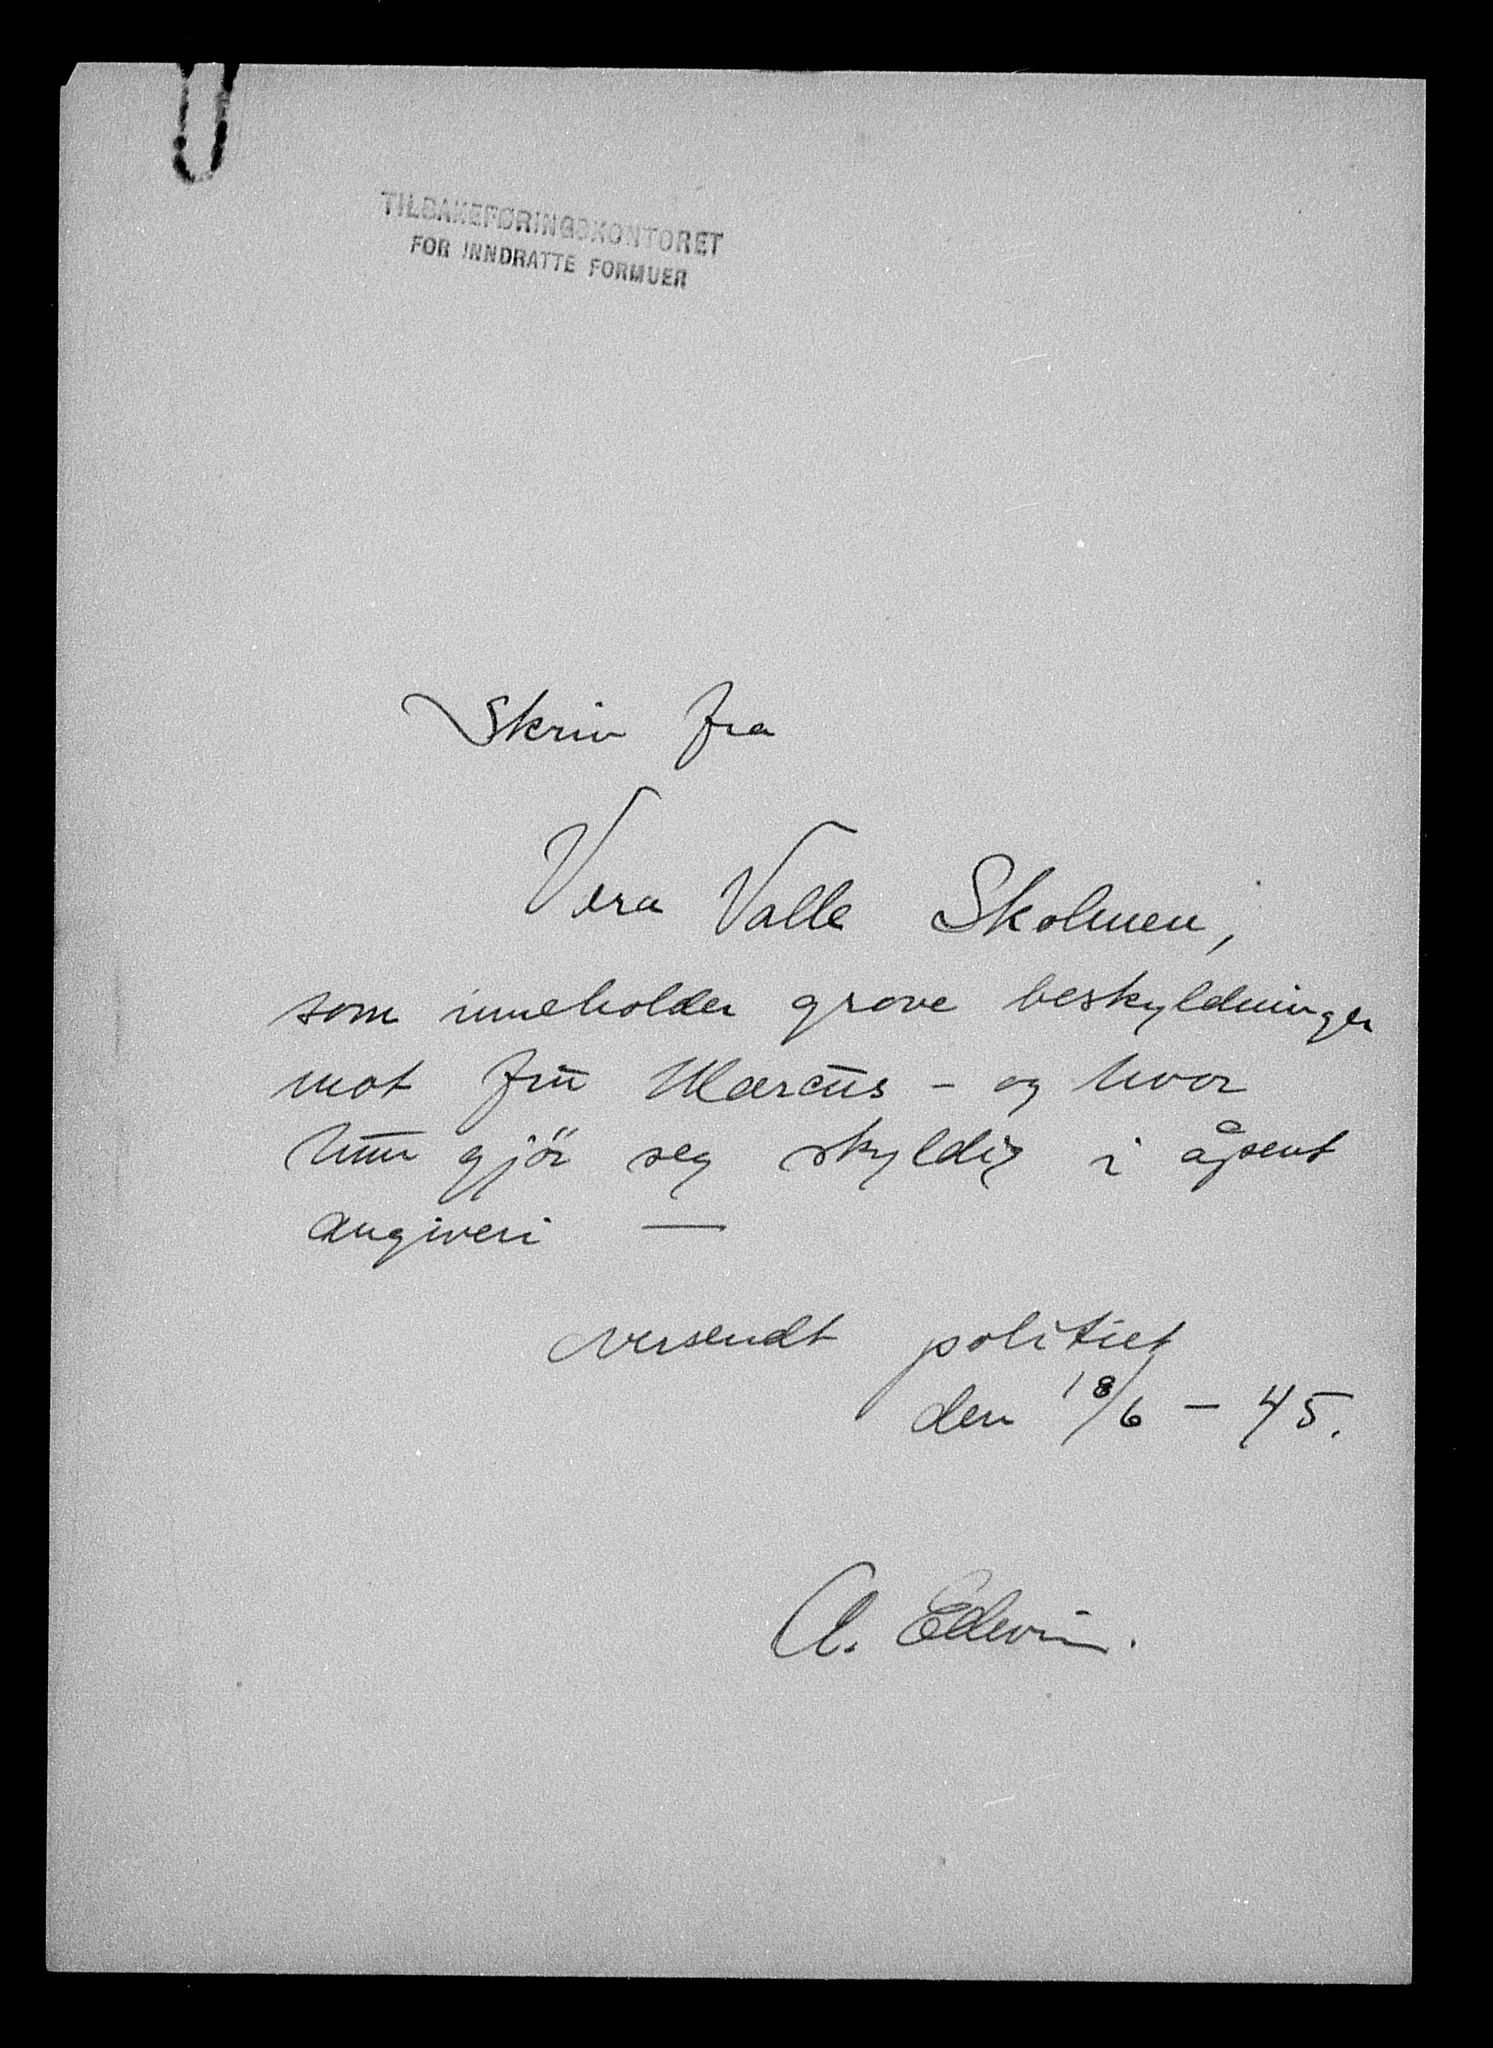 TILBAKEFØRINGSKONTORET
FOR INNDRATTE FORMUER
Skriv fra
Vera Valle Skolmen,
som inneholder grove beskyldninger
mot frū Marcūs – og hvor
hūn gjör seg skyldig i åpent
angiveri —
oversendt politiet
den 18/6 – 45.
A. Edevin.